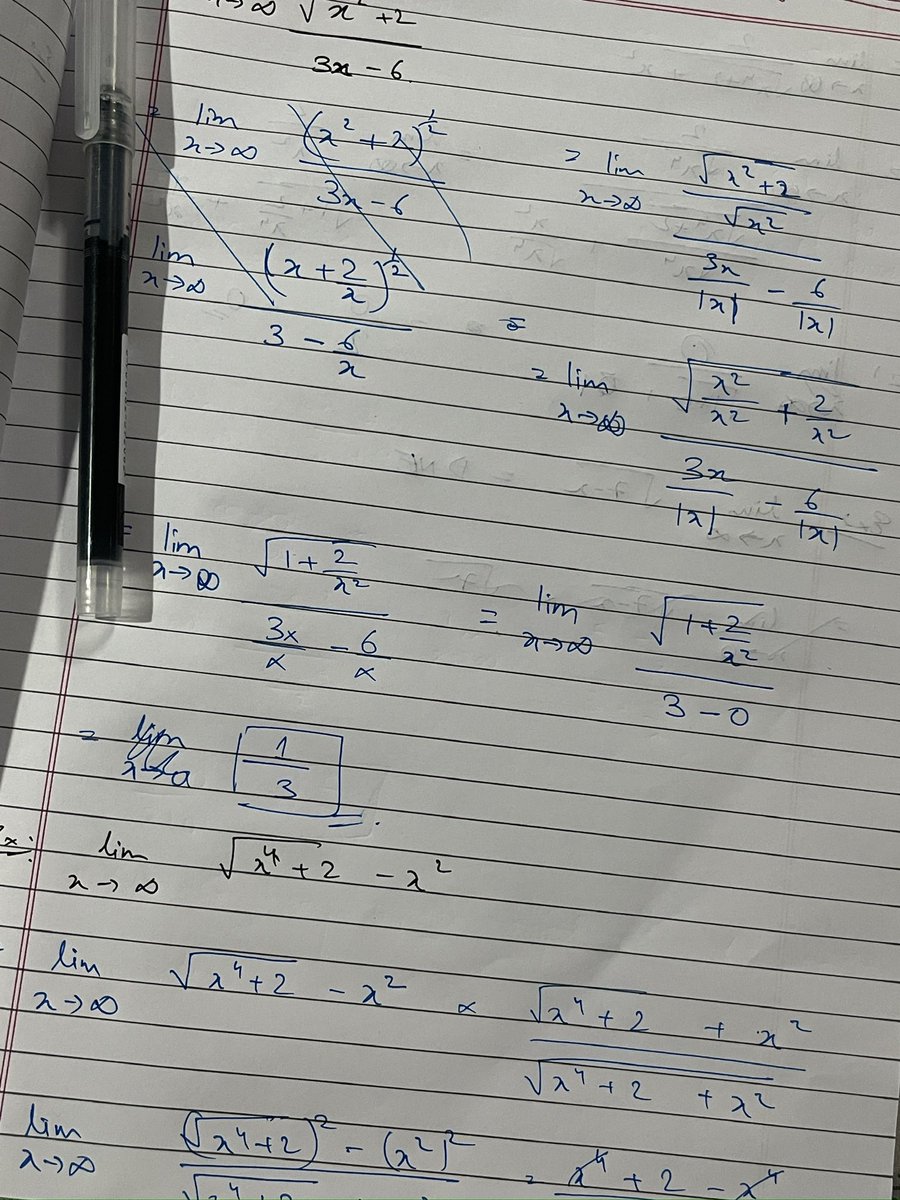 x→∞ √x²+2
3x - 6
= lim x→∞ (x² + 2)^1/2
3x - 6
lim x→∞ (x + 2/x)^1/2
3 - 6/x
=
= lim x→∞ √x²+2
√x²
3x/|x| - 6/|x|
= lim x→∞ √x²/x² + 2/x²
3x/|x| - 6/|x|
= lim x→∞ √1+2/x²
3x/x - 6/x
= lim x→∞ √1+2/x²
3 - 0
= lim x→a 1/3
Ex: lim x→∞ √x⁴+2 - x²
lim x→∞ √x⁴+2 - x² × √x⁴+2 + x²
√x⁴+2 + x²
lim x→∞ (√x⁴+2)² - (x²)² = x⁴ + 2 - x⁴
√x⁴+2